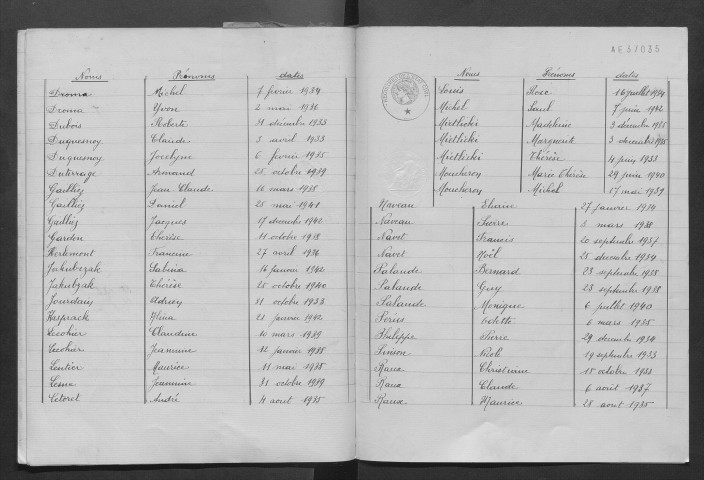 Noms Prénoms dates
Droma Michel 7 février 1934
Droma Yvon 2 mai 1936
Dubois Roberte 31 décembre 1933
Duquesnoy Claude 3 avril 1933
Duquesnoy Jocelyne 6 février 1935
Duterrage Armand 25 octobre 1939
Gailliez Jean-Claude 16 mars 1938
Gailliez Daniel 25 mai 1941
Gailliez Jacques 17 décembre 1942
Gardon Thérèse 11 octobre 1938
Herlemont Francine 27 avril 1936
Jakubczak Sabina 16 janvier 1942
Jakubzak Thérèse 25 octobre 1940
Jourdain Audrey 31 octobre 1933
Kasprack Mina 21 janvier 1942
Lecohier Claudine 10 mars 1939
Lecohier Jeannine 12 janvier 1938
Lentier Maurice 11 mai 1935
Lesne Jeannine 31 octobre 1939
Létoret André 4 août 1935
A63/035
Noms Prénoms dates
Louis Rose 16 juillet 1934
Michel Paul 7 juin 1932
Mietlicki Madeleine 3 décembre 1935
Mietlicki Marguerite 3 décembre 1935
Mietlicki Thérèse 4 juin 1933
Moucheron Marie Thérèse 29 juin 1940
Moucheron Michel 17 mai 1939
Naveau Eliane 27 janvier 1934
Naveau Pierre 3 mars 1938
Navet Francis 20 septembre 1937
Navet Noël 25 décembre 1934
Palaude Bernard 23 septembre 1938
Palaude Guy 23 septembre 1938
Palaude Monique 6 juillet 1940
Odette 6 mars 1935
Philippe Pierre 29 décembre 1934
Pinson Nicole 19 septembre 1933
Raux Christiane 15 octobre 1933
Raux Claude 6 août 1937
Raux Maurice 28 août 1935